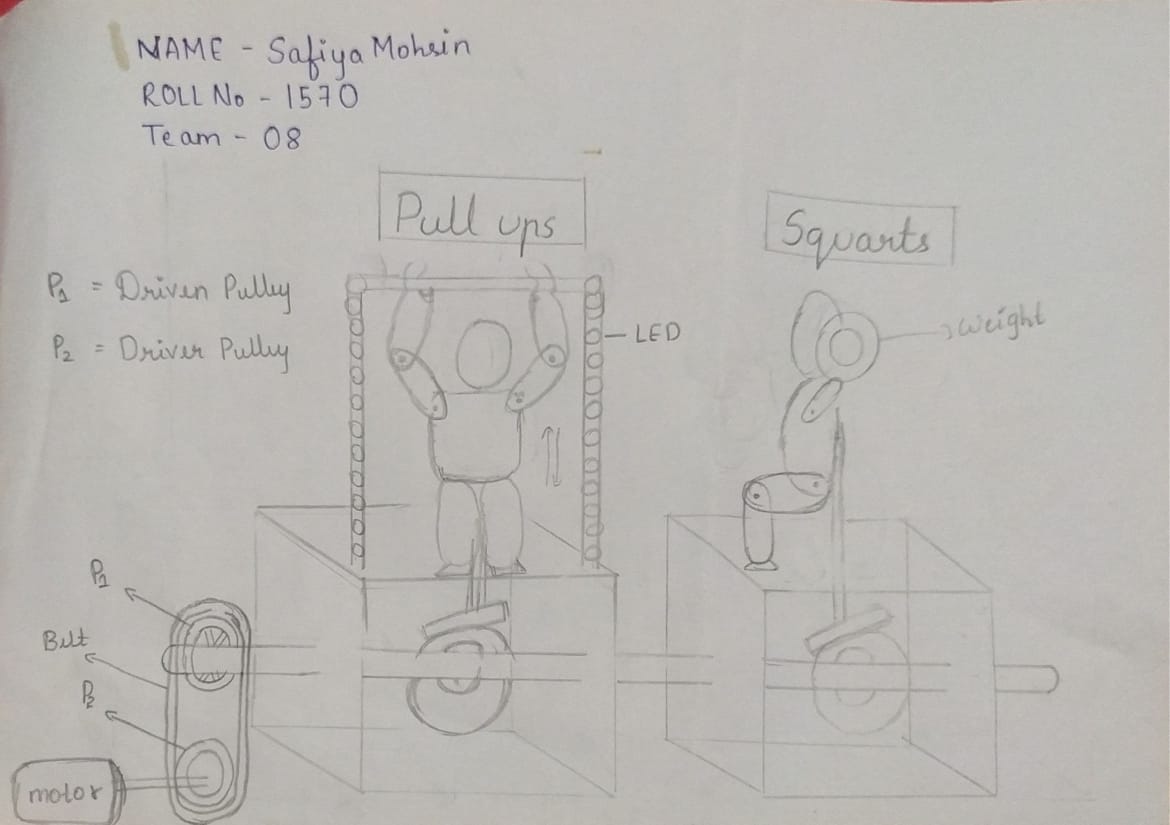 NAME - Safiya Mohsin
ROLL No - 1570
Team - 08
Pull ups
Squarts
P1 = Driven Pulley
P2 = Driver Pulley
LED
Weight
P1
Belt
P2
motor